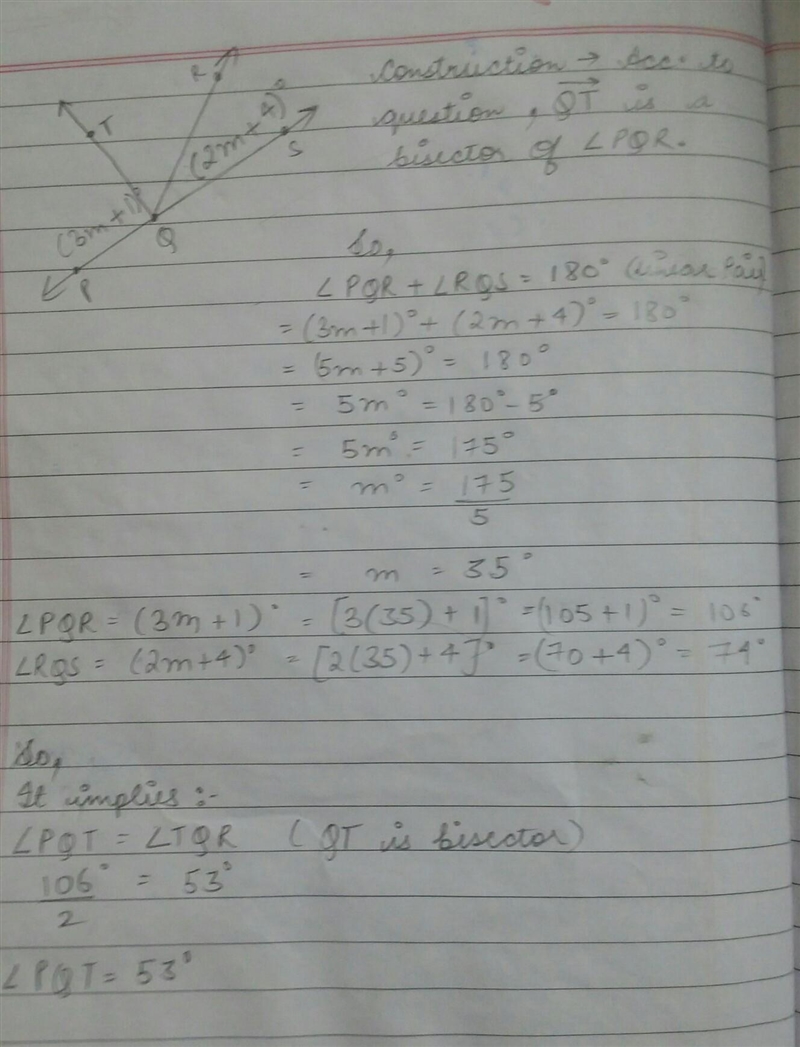 R
T
S
Q
P
(2m + 4)°
(3m + 1)°
Construction → Acc. to
question, QT is a
bisector of ∠PQR.
So,
∠PQR + ∠RQS = 180° (Linear Pair)
= (3m+1)° + (2m+4)° = 180°
= (5m+5)° = 180°
= 5m° = 180° - 5°
= 5m° = 175°
= m° = 175/5
= m = 35°
∠PQR = (3m+1)° = [3(35)+1]° = (105+1)° = 106°
∠RQS = (2m+4)° = [2(35)+4]° = (70+4)° = 74°
So,
It implies :-
∠PQT = ∠TQR (QT is bisector)
106°/2 = 53°
∠PQT = 53°